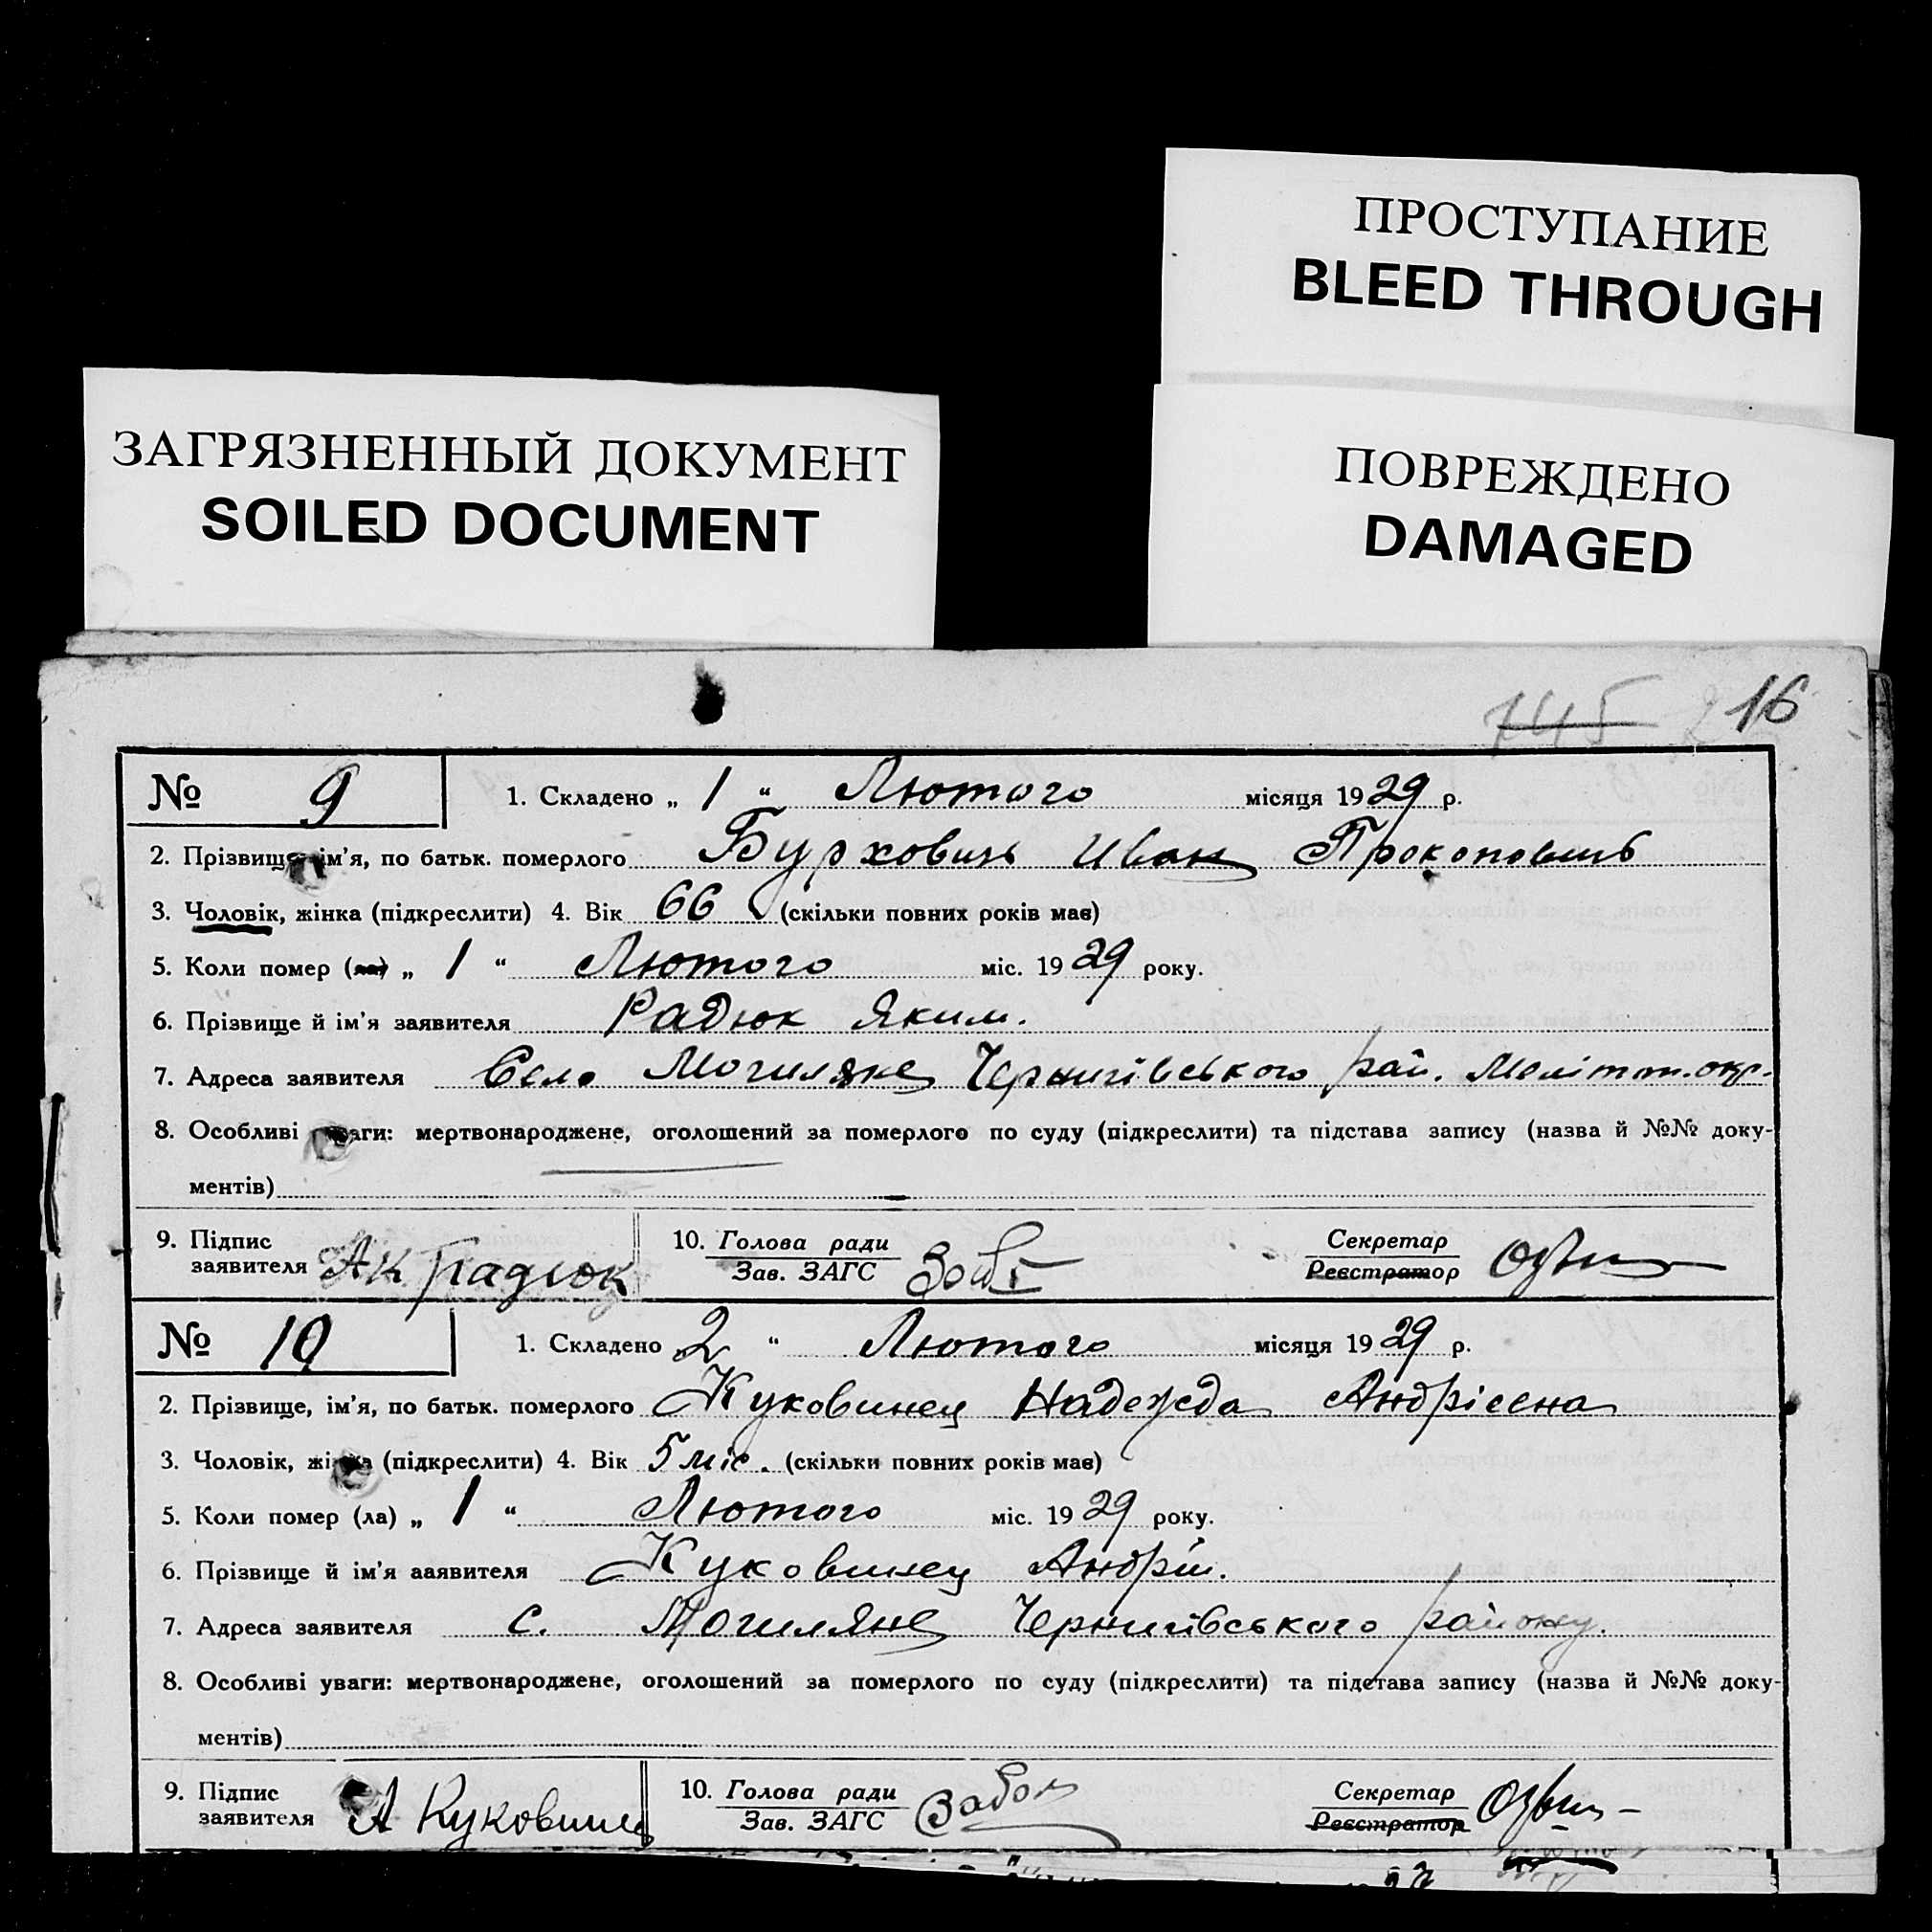 ПРОСТУПАНИЕ
BLEED THROUGH
ЗАГРЯЗНЕННЫЙ ДОКУМЕНТ
SOILED DOCUMENT
ПОВРЕЖДЕНО
DAMAGED
745 16
№ 9 1. Складено „ 1 “ Лютого місяця 1929 р.
2. Прізвище ім’я, по батьк. померлого Бурховичь Иван Прокоповичь
3. Чоловік, жінка (підкреслити) 4. Вік 66 (скільки повних років має)
5. Коли помер (ла) „ 1 “ Лютого міс. 1929 року.
6. Прізвище й ім’я заявителя Радюк Яким.
7. Адреса заявителя Село Могиляне Чернигівського рай. Мелітоп. окр.
8. Особливі уваги: мертвонароджене, оголошений за померлого по суду (підкреслити) та підстава запису (назва й №№ доку-
ментів)
9. Підпис заявителя Ак Градюк 10. Голова ради Зав. ЗАГС Секретар Реєстратор
№ 10 1. Складено 2 “ Лютого місяця 1929 р.
2. Прізвище, ім’я, по батьк. померлого Куковинец Надежда Андріевна
3. Чоловік, жінка (підкреслити) 4. Вік 5 міс. (скільки повних років має)
5. Коли помер (ла) „ 1 “ Лютого міс. 1929 року.
6. Прізвище й ім’я заявителя Куковинец Андрій.
7. Адреса заявителя с. Могиляне Чернигівського району.
8. Особливі уваги: мертвонароджене, оголошений за померлого по суду (підкреслити) та підстава запису (назва й №№ доку-
ментів)
9. Підпис заявителя А Куковинец 10. Голова ради Зав. ЗАГС Секретар Реєстратор